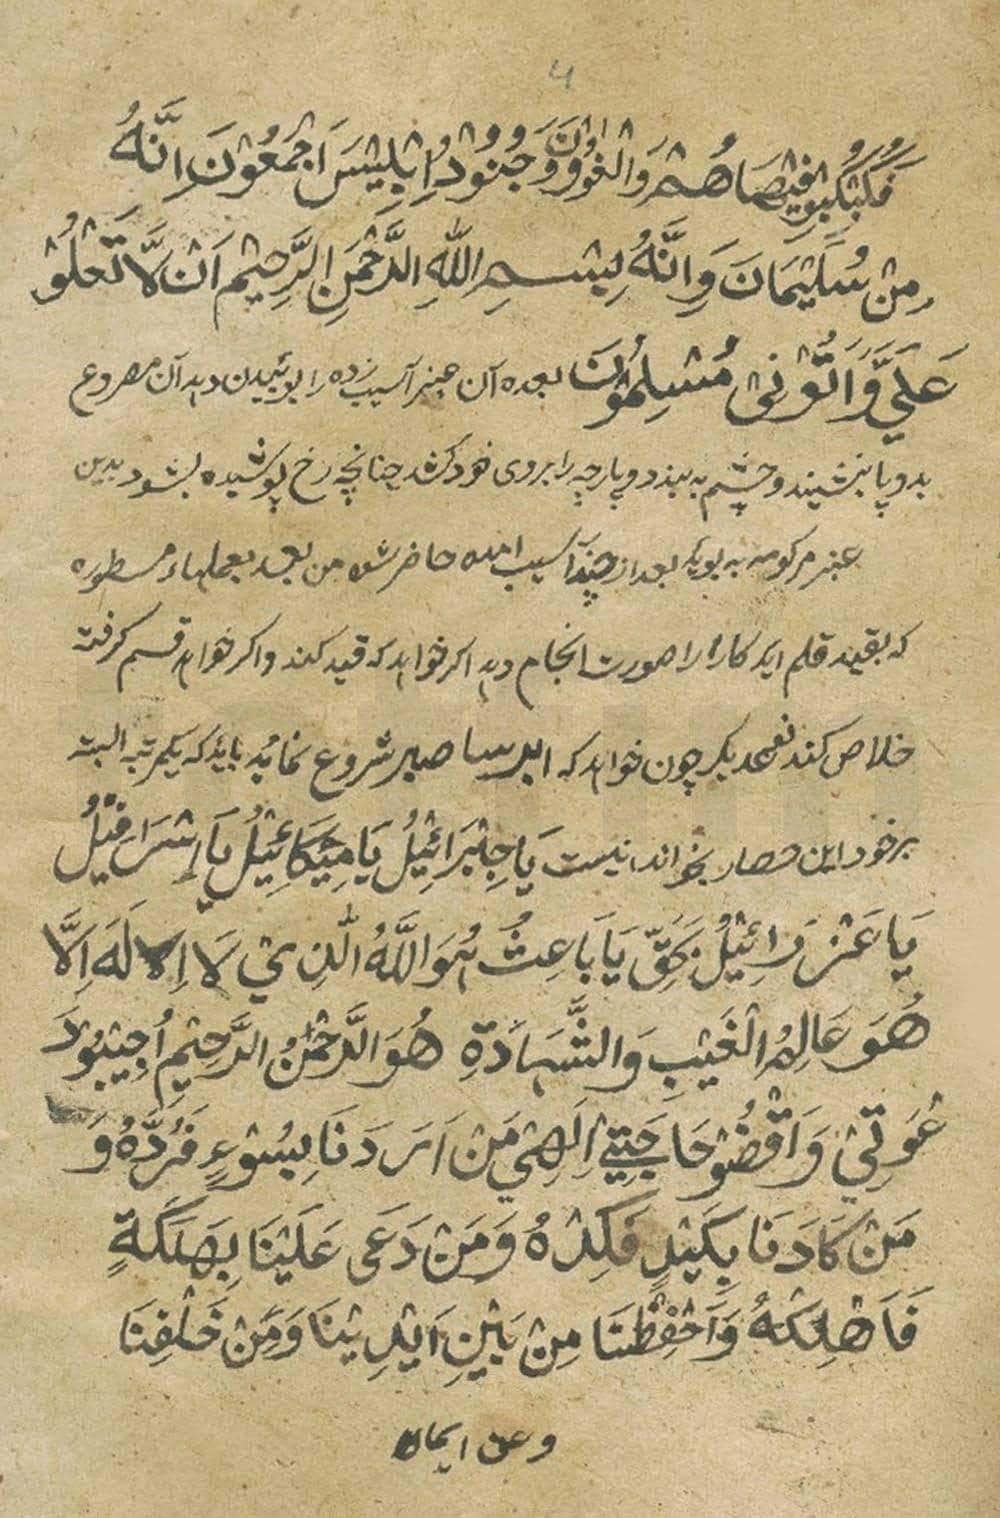 ۴
فَكُبْكِبُوْا فِيْهَا هُمْ وَالْغَاوٗنَ وَجُنُوْدُ اِبْلِيْسَ اَجْمَعُوْنَ اِنَّهُ
مِنْ سُلَيْمَانَ وَاِنَّهُ بِسْمِ اللّٰهِ الرَّحْمَنِ الرَّحِيْمِ اَنْ لَّا تَعْلُوْ
عَلَيَّ وَاْتُوْنِىْ مُسْلِمُوْنَ بعده آن عنبر آسیب زده را بوئیدن دهد آن مصروع
بدو پا بنشیند و چشم به بندد و پارچه را بروی خود کشد چنانچه رخ پوشیده بشود بدین
عنبر مرکومه به بوید بعد از چند آسیب آمده حاضر شود من بعد بعملهاء مسطوره
که بقید قلم آید کار او را صورت انجام دهد اکر خواهد که قید کند و اکر خواهد قسم کرفته
خلاص کند دیکر چون خواهد که شروع نماید باید که یکمرتبه البته
برخود این حصار بخواند اینست يَا جِبْرَائِيْلُ يَا مِيْكَائِيْلُ يَا اِسْرَافِيْلُ
يَا عَزْرَائِيْلُ بَحَقِّ يَا بَاعِثُ هُوَ اللَّهُ الَّذِيْ لَا اِلَهَ اِلَّا
هُوَ عَالِمُ الْغَيْبِ وَالشَّهَادَةِ هُوَ الرَّحْمٰنُ الرَّحِيْمِ اُجِيْبُوْا دَ
عْوَتِيْ وَاقْضُوْ حَاجَتِيْ اِلَهِيْ مَنْ اَرَدَنَا بِسُوْءٍ فَرُدَّهُ وَ
مَنْ كَادَنَا بِكَيْدٍ فَكِدْهُ وَمَنْ دَعَى عَلَيْنَا بِهَلَكَةٍ
فَاَهْلِكْهُ وَاَحْفِظْنَا مِنْ بَيْنِ اَيْدِيْنَا وَمِنْ خَلْفِنَا
وعن ایمان